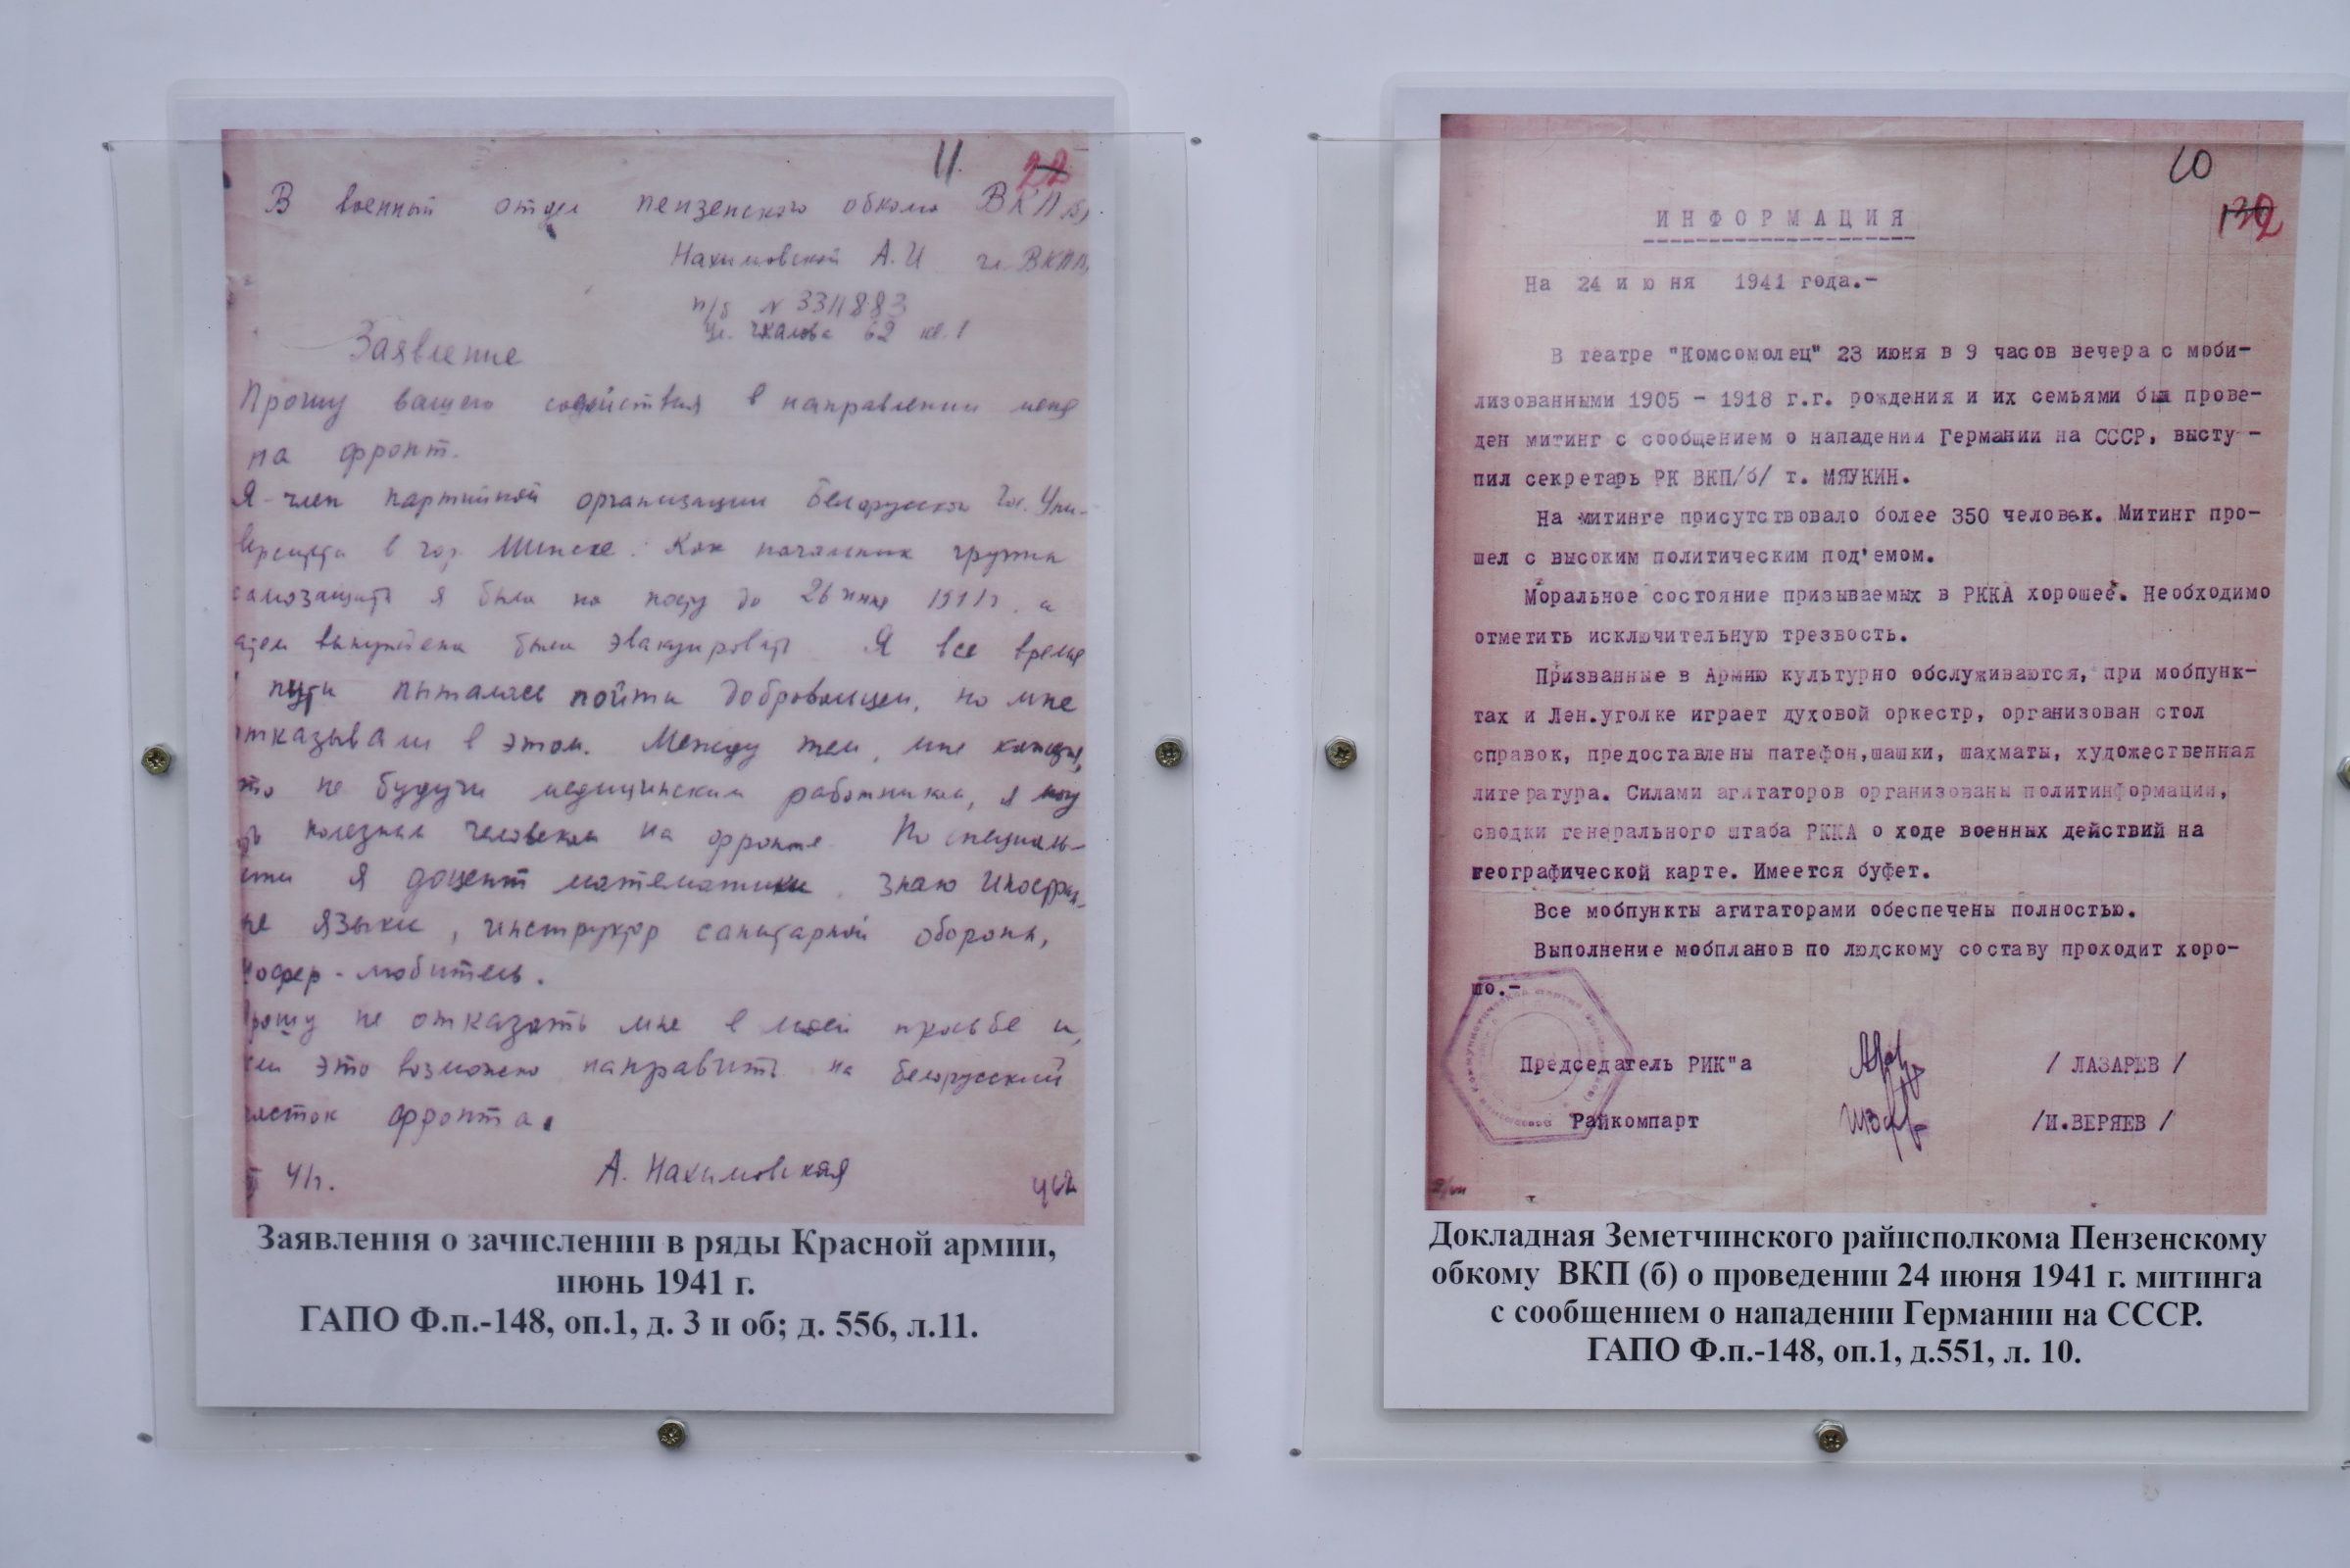 11. 22
В военный отдел пензенского обкома ВКП(б)
Нахимовской А.И чл. ВКПб,
п/б N 3311883
ул. Чкалова 62 кв. 1
Заявление
Прошу вашего содействия в направлении меня
на фронт.
Я - член партийной организации Белорусского Гос. Уни-
верситета в гор. Минске. Как начальник группы
самозащиты я была на посту до 26 июня 1941 г. а
атем вынуждена была эвакуироваться Я все время
пути пыталась пойти добровольцем, но мне
отказывали в этом. Между тем, мне кажется,
то не будучи медицинским работником, я могу
ть полезным человеком на фронте. По специаль-
сти я доцент математики. Знаю иностран-
ые языки, инструктор санитарной обороны,
шофер-любитель.
Прошу не отказать мне в моей просьбе и,
ли это возможно направить на белорусский
часток фронта.
41 г. А. Нахимовская
Заявления о зачислении в ряды Красной армии,
июнь 1941 г.
ГАПО Ф.п.-148, оп.1, д. 3 и об; д. 556, л.11.
10
ИНФОРМАЦИЯ
На 24 июня 1941 года.-
В театре "Комсомолец" 23 июня в 9 часов вечера с моби-
лизованными 1905 - 1918 г.г. рождения и их семьями был прове-
ден митинг с сообщением о нападении Германии на СССР, высту-
пил секретарь РК ВКП/б/ т. МЯУКИН.
На митинге присутствовало более 350 человек. Митинг про-
шел с высоким политическим под'емом.
Моральное состояние призываемых в РККА хорошее. Необходимо
отметить исключительную трезвость.
Призванные в Армию культурно обслуживаются, при мобпунк-
тах и Лен.уголке играет духовой оркестр, организован стол
справок, предоставлены патефон,шашки, шахматы, художественная
литература. Силами агитаторов организованы политинформации,
сводки генерального штаба РККА о ходе военных действий на
географической карте. Имеется буфет.
Все мобпункты агитаторами обеспечены полностью.
Выполнение мобпланов по людскому составу проходит хоро-
шо.-
Председатель РИК"а / ЛАЗАРЕВ /
Райкомпарт /И.ВЕРЯЕВ /
Докладная Земетчинского райисполкома Пензенскому
обкому ВКП (б) о проведении 24 июня 1941 г. митинга
с сообщением о нападении Германии на СССР.
ГАПО Ф.п.-148, оп.1, д.551, л. 10.